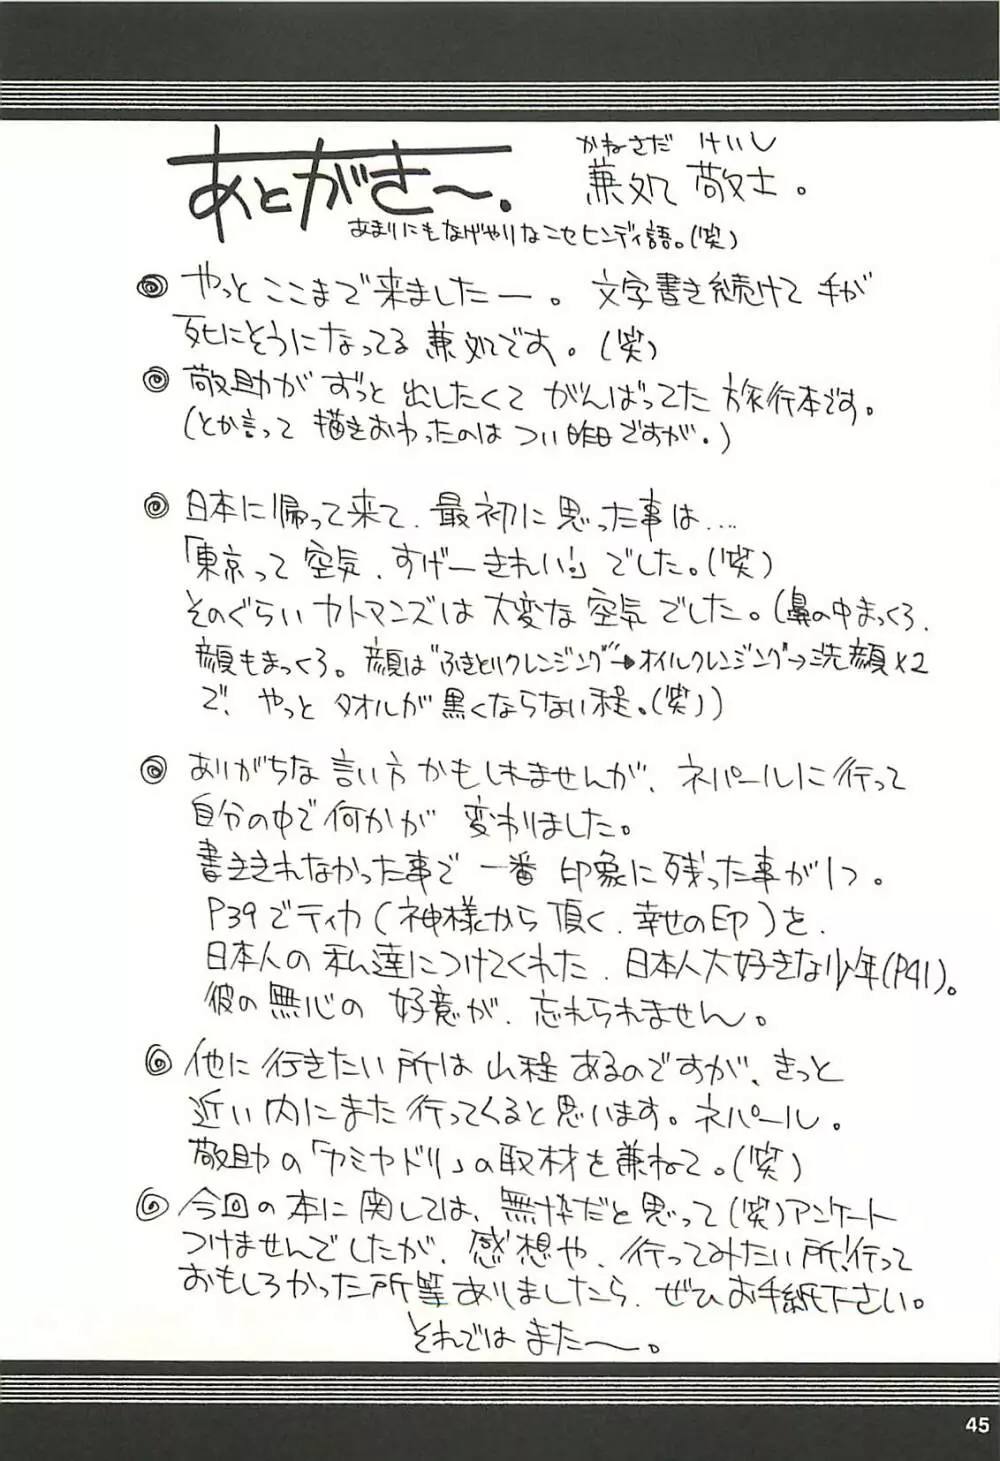 かねさだ けいし
あとがき〜. 兼処 敬士。
あまりにもなげやりなニセヒンディ語。(笑)
やっとここまで来ましたー。 文字書き続けて手が
死にそうになってる兼処です。(笑)
敬助がずっと出したくてがんばってた旅行本です。
(とか言って描きおわったのはつい昨日ですが。)
日本に帰って来て、最初に思った事は....
「東京って空気、すげーきれい!」でした。(笑)
そのぐらいカトマンズは大変な空気でした。(鼻の中まっくろ、
顔もまっくろ。顔は"ふきとりクレンジング"→オイルクレンジング→洗顔×2
で、やっとタオルが黒くならない程。(笑))
ありがちな言い方かもしれませんが、ネパールに行って
自分の中で何かが変わりました。
書ききれなかった事で一番印象に残った事が1つ。
P39でティカ(神様から頂く、幸せの印)を、
日本人の私達につけてくれた、日本人大好きな少年(P41)。
彼の無心の好意が、忘れられません。
他に行きたい所は山程あるのですが、きっと
近い内にまた行ってくると思います。ネパール。
敬助の「カミヤドリ」の取材を兼ねて。(笑)
今回の本に関しては、無粋だと思って(笑)アンケート
つけませんでしたが、感想や、行ってみたい所!行って
おもしろかった所等ありましたら、ぜひお手紙下さい。
それではまた〜。
45